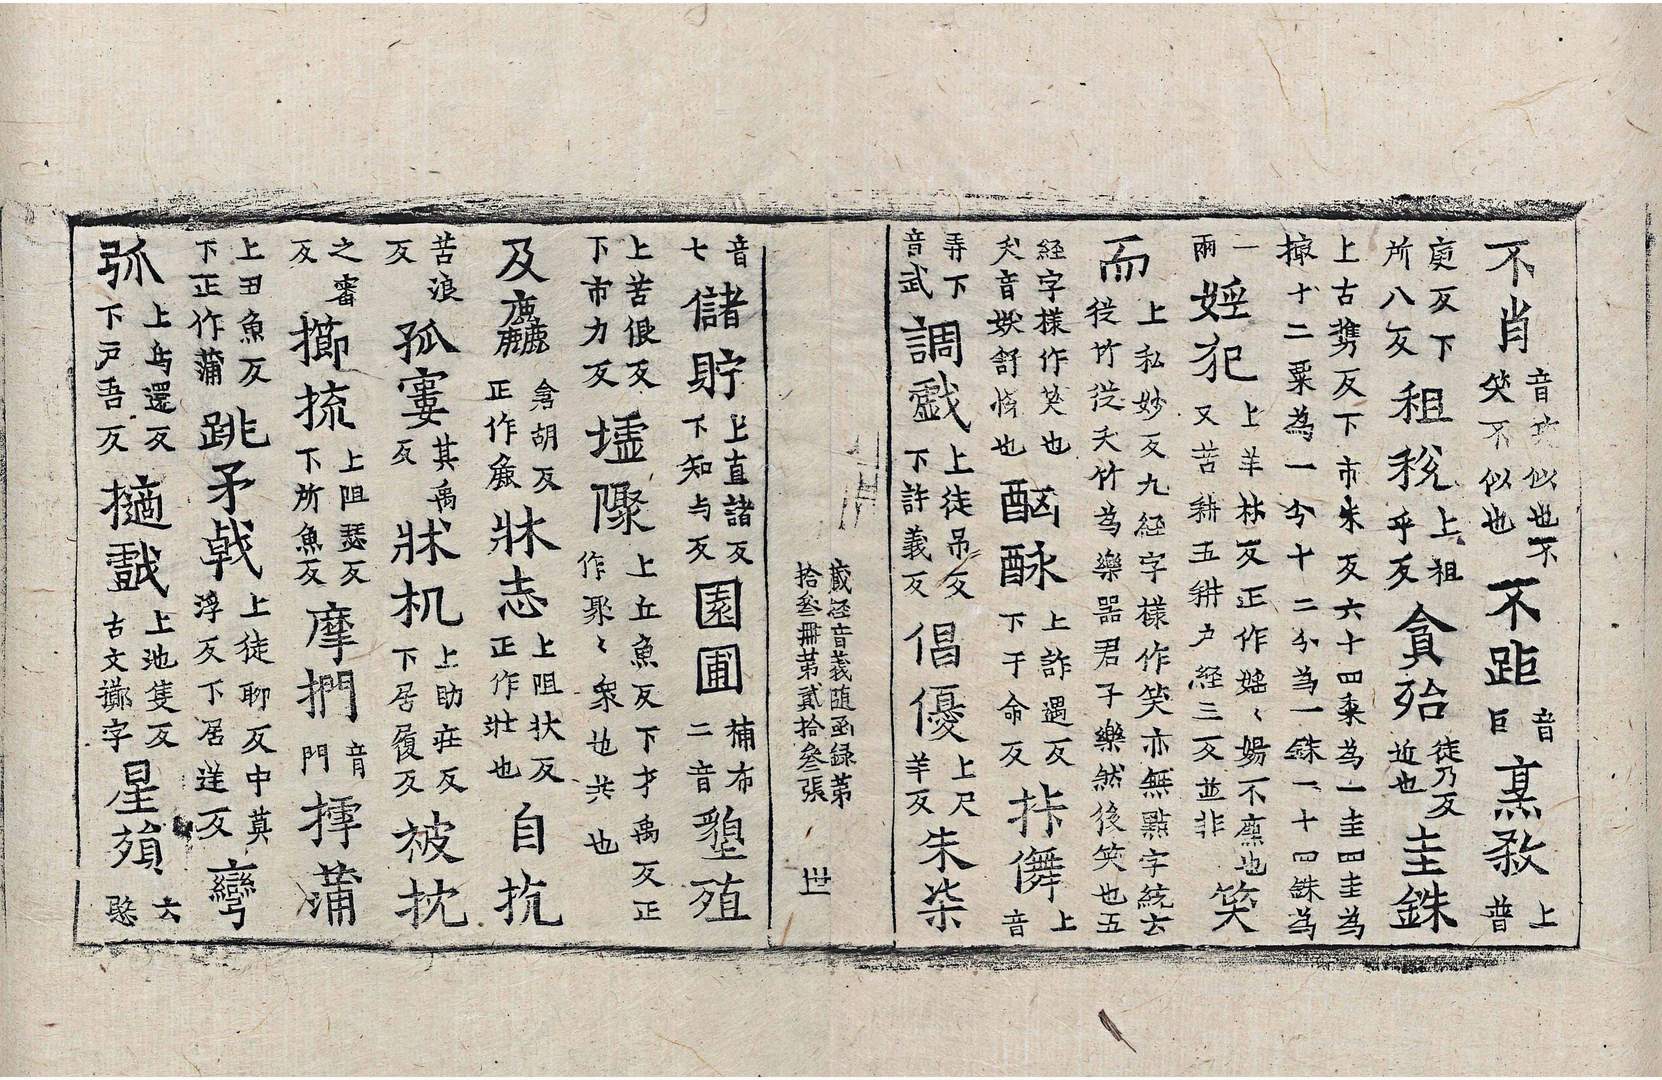 不肖音笑似也不笑不似也不距音巨烹殺上普
庚反下所八反租稅上祖乎反貪殆徒乃反近也圭銖
上古攜反下市朱反六十四黍為一圭四圭為撮十二粟為一分十二分為一銖一十四銖為
一兩婬犯上羊林反正作婬〻媱不廉也又苦耕五耕户経三反並非笑
而上私妙反九経字樣作笑亦無點字統云從竹從夭竹為樂器君子樂然後笑也五
経字樣作笑也夭音妖舒悅也酗酗上許遇反下于命反抃儛上音
弄下音武調戲上徒吊反下許義反倡優上尺羊反朱柒
藏経音義随函録第拾叁冊第貳拾叁張 世
音七儲貯上直諸反下知与反園圃補布二音墾殖
上苦佷反下市力反墟聚上丘魚反下才禹反正作聚〻衆也共也
及麤倉胡反正作麁牀志上阻状反正作壯也自抗
苦浪反孤寠其禹反牀机上助莊反下居履反被枕
之審反擳梳上阻瑟反下所魚反摩捫音門摴蒲
上丑魚反下正作蒲跳矛戟上徒聊反中莫浮反下居逆反彎
弧上烏還反下戸吾反擿戲上池隻反古文擲字星殞云愍